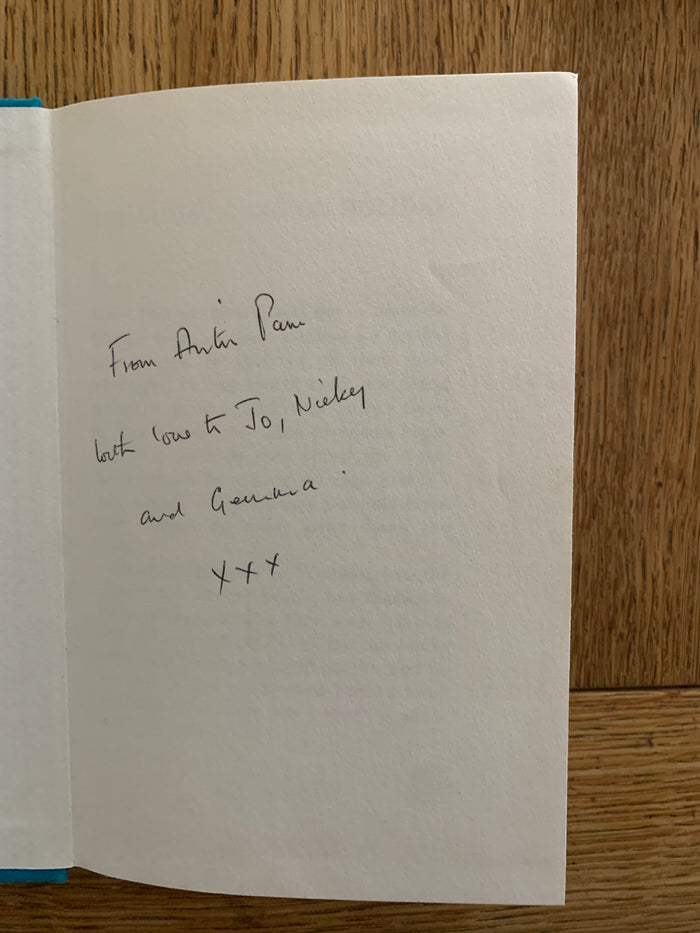 From Auntie Pam
with love to Jo, Nicky
and Gemma.
xxx